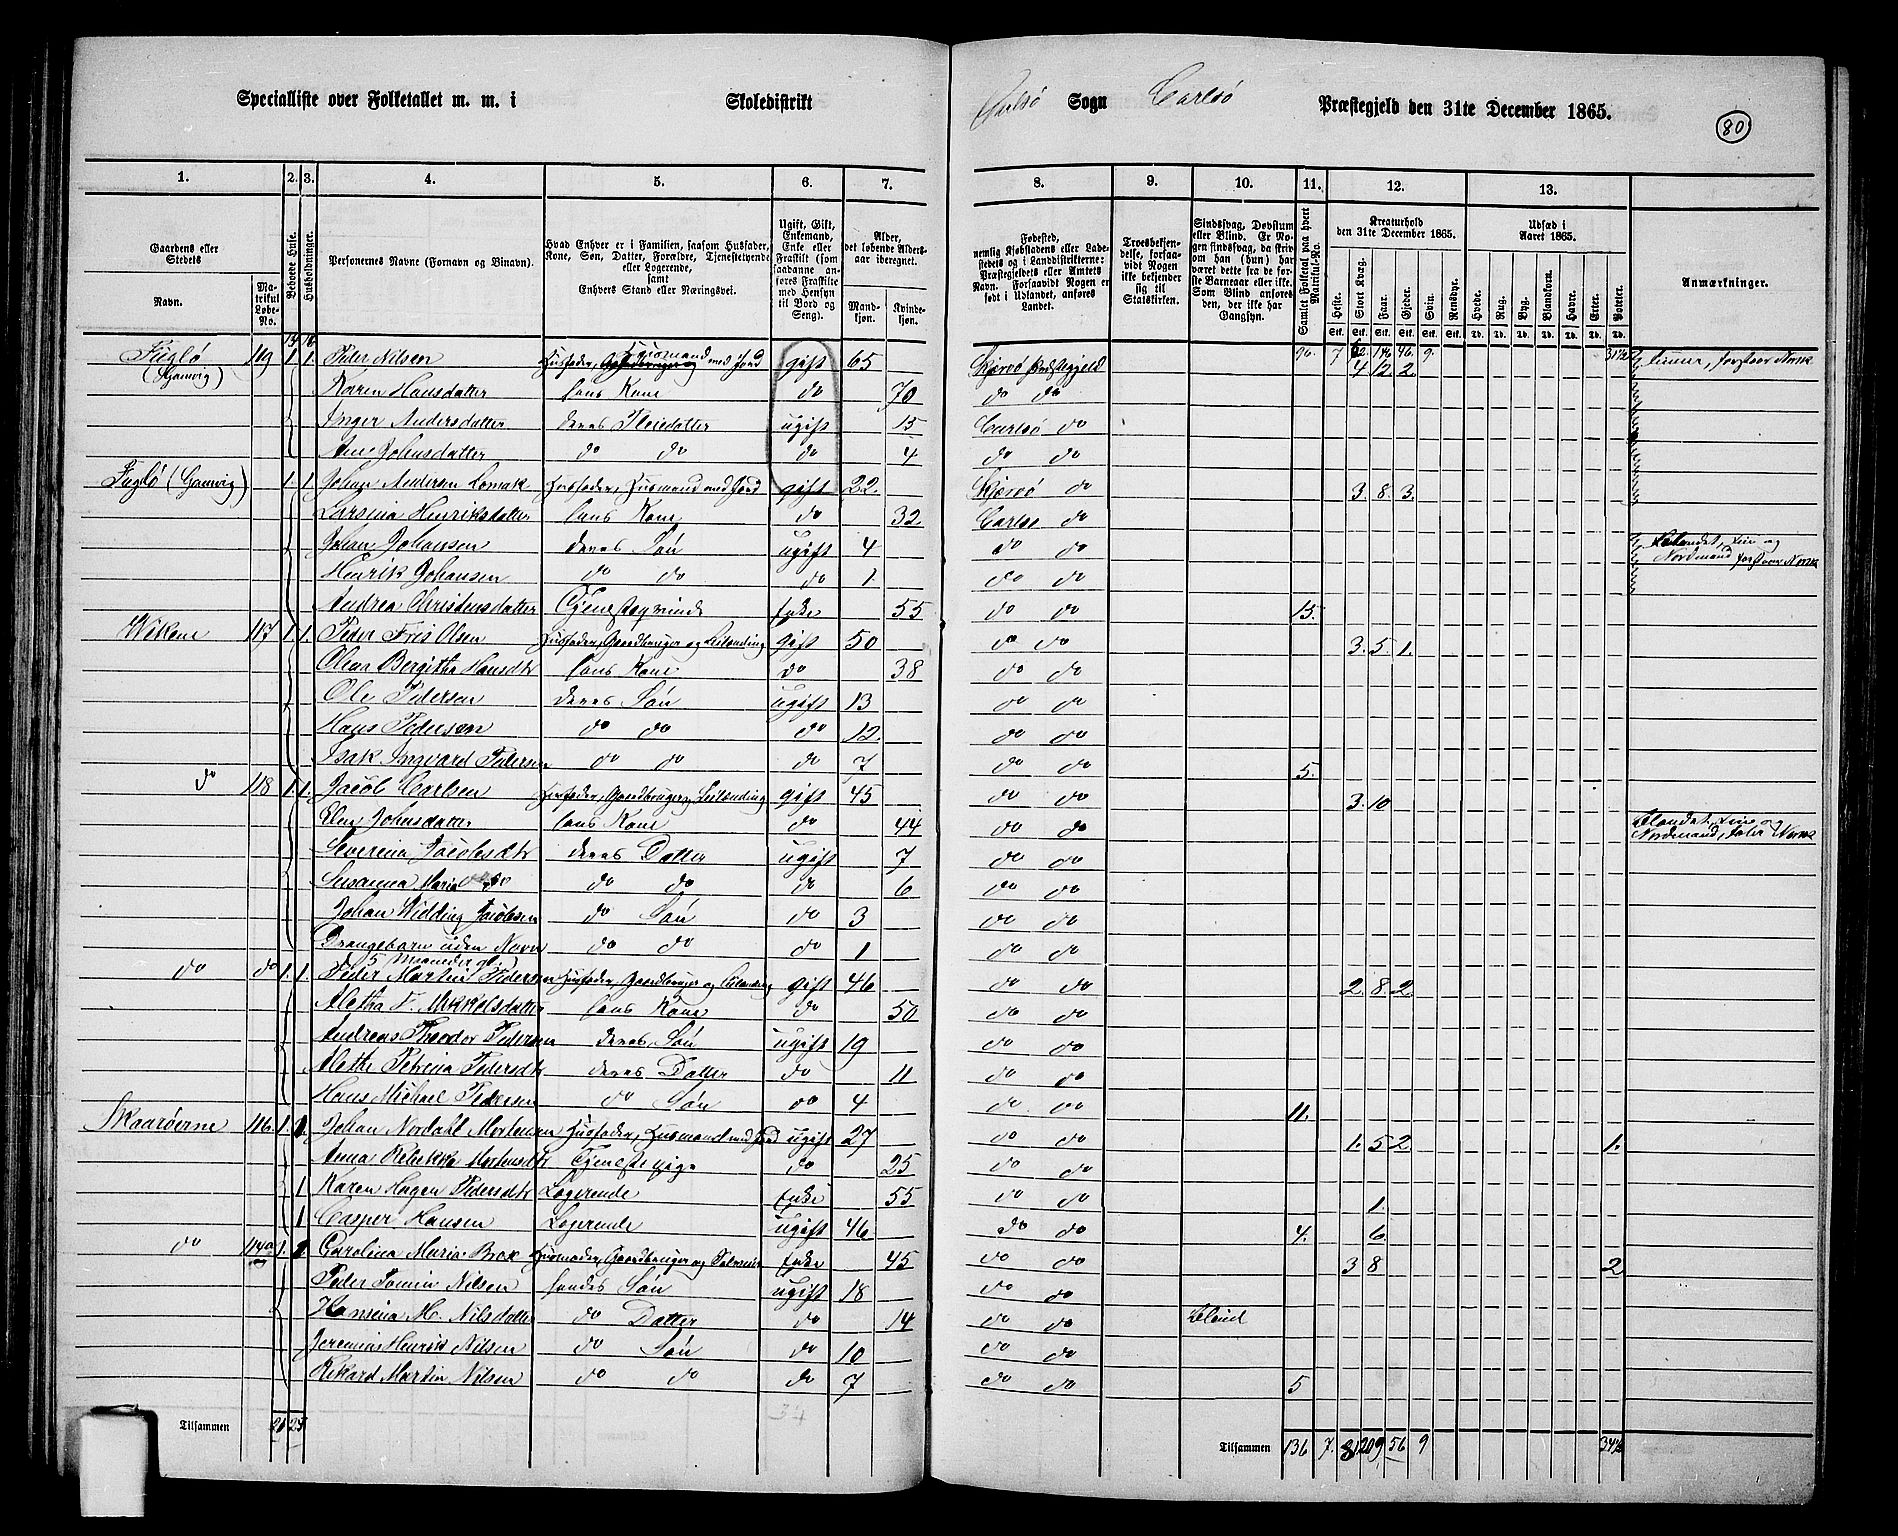 Specialliste over Folketallet m. m. i Skoledistrikt Carlsö Sogn Carlsö Præstegjeld den 31te December 1865. 80
1. 2. 3. 4. 5. 6. 7. 8. 9. 10. 11. 12. 13.
Gaardens eller Stedets
Navn.
Matrikul Løbe-No.
Beboede Huse.
Husholdninger.
Personernes Navne (Fornavn og Binavn).
Hvad Enhver er i Familien, saasom Husfader, Kone, Søn, Datter, Forældre, Tjenestetyende eller Logerende, samt Enhvers Stand eller Næringsvei.
Ugift, Gift, Enkemand, Enke eller Fraskilt (som saadanne anføres Fraskilte med Hensyn til Bord og Seng).
Alder, det løbende Aldersaar iberegnet.
Mandkjøn. Kvindekjøn.
Fødested, nemlig Kjøbstadens eller Ladestedets og i Landdistrikterne: Præstegjeldets eller Amtets Navn. Forsaavidt Nogen er født i Udlandet, anføres Landet.
Troesbekjendelse, forsaavidt Nogen ikke bekjender sig til Statskirken.
Sindssvag, Døvstum eller Blind. Er Nogen sindssvag, da skrives om han (hun) har været dette fra de første Barneaar eller ikke. Som Blind anføres den, der ikke har Gangsyn.
Samlet Folketal paa hvert Matrikul-No.
Kreaturhold den 31te December 1865.
Heste. Stort Kvæg. Faar. Gjeder. Svin. Rensdyr.
Udsæd i Aaret 1865.
Hvede. Rug. Byg. Blandkorn. Havre. Erter. Poteter.
Anmærkninger.
Fuglö (Gamvig) 119 1. 1. Peder Nilsen Husfader, Husmand med Jord gift 65 Skjervö Præstegjeld 4 12 2
Karen Hansdatter hans Kone do 70 do do
Inger Andersdatter deres Pleiedatter ugift 15 Carlsö do
Ane Johnsdatter do do do 4 do do
Fuglö (Gamvig) 1. 1. Johan Andersen Lomak Husfader, Husmand med Jord gift 22. Skjervö do 3. 8. 3.
Lorsina Henriksdatter hans Kone do 32. Carlsö do
Johan Johansen deres Søn ugift 4 do do
Henrik Johansen do do do 1. do do
Andrea Christensdatter Tjenestqvinde Enke 55 do do 15.
117 1. 1. Peder Friis Olsen Husfader, Gaardbruger og Leilænding gift 50 do do 3. 5. 1.
Olena Bergitha Hansdtr hans Kone do 38 do do
Ole Pedersen deres Søn ugift 13 do do
Hans Pedersen do do do 12. do do
Isak Ingvard Pedersen do do do 7 do do 5.
do 118 1. 1. Jacob Carlsen Husfader, Gaardbruger, Leilænding gift 45 do do 3. 10
Elen Johnsdatter hans Kone do 44 do do
Severina Jacobsdtr deres Datter ugift 7 do do
Susanna Maria do do do do 6 do do
Johan Widding Jacobsen do Søn do 3 do do
Drengebarn uden Navn do do do 1 do do
5 Maaneder
do do 1. 1. Peder Martin Pedersen Husfader, Gaardbruger og Leilænding gift 46 do do 2. 8. 2.
Aletha F. Mikkelsdatter hans Kone do 50 do do
Andreas Theodor Pedersen deres Søn ugift 19 do do
Alethe Petrina Pedersdtr deres Datter do 11 do do
Hans Michael Pedersen do Søn do 4 do do 11.
Skaaröerne 116. 1. 1. Johan Nordahl Mortensen Husfader, Husmand med Jord ugift 27 do do 1. 5 2 1.
Anna Rebekka Mortensdtr Tjenestepige do 25 do do
1 Karen Hagen Pedersdtr Logerende Enke 55 do do 1.
1 Casper Hansen Logerende ugift 46 do do 4. 6.
do 114a 1. Carolina Maria Brox Husmoder, Gaardbruger og Enke 45 do do 3 8 2
Peder Nilsen hendes Søn ugift 18 do do
Hansina M. Nilsdatter do Datter do 14 do do Blind
Jeremias Henrik Nilsen do Søn do 10 do do
Rikard Martin Nilsen do do do 7 do do 5
Tilsammen 34
Tilsammen 136 7. 209 56 9